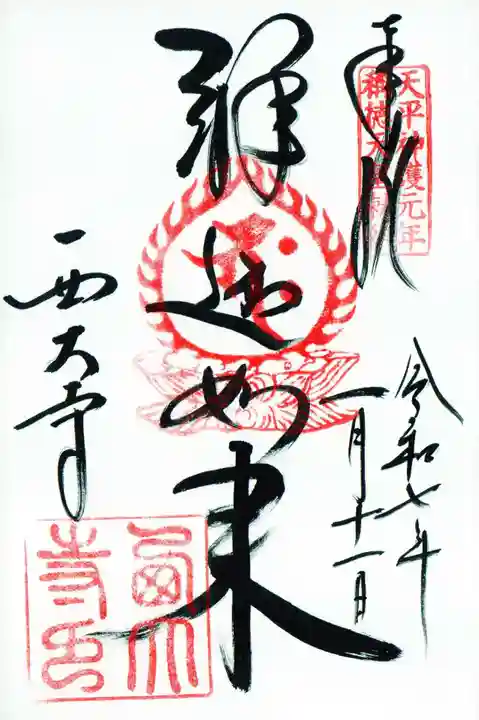 奉拝
天平神護元年
称徳天皇勅願
令和七年
一月十一日
釋迦如来
西大寺
西大寺印